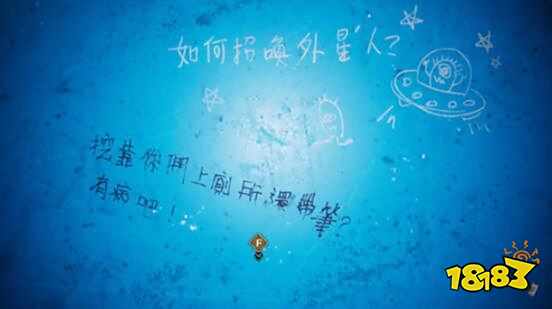 如何招喚外星人?
挖靠你們上廁所還帶筆?
有病吧!
F
18183